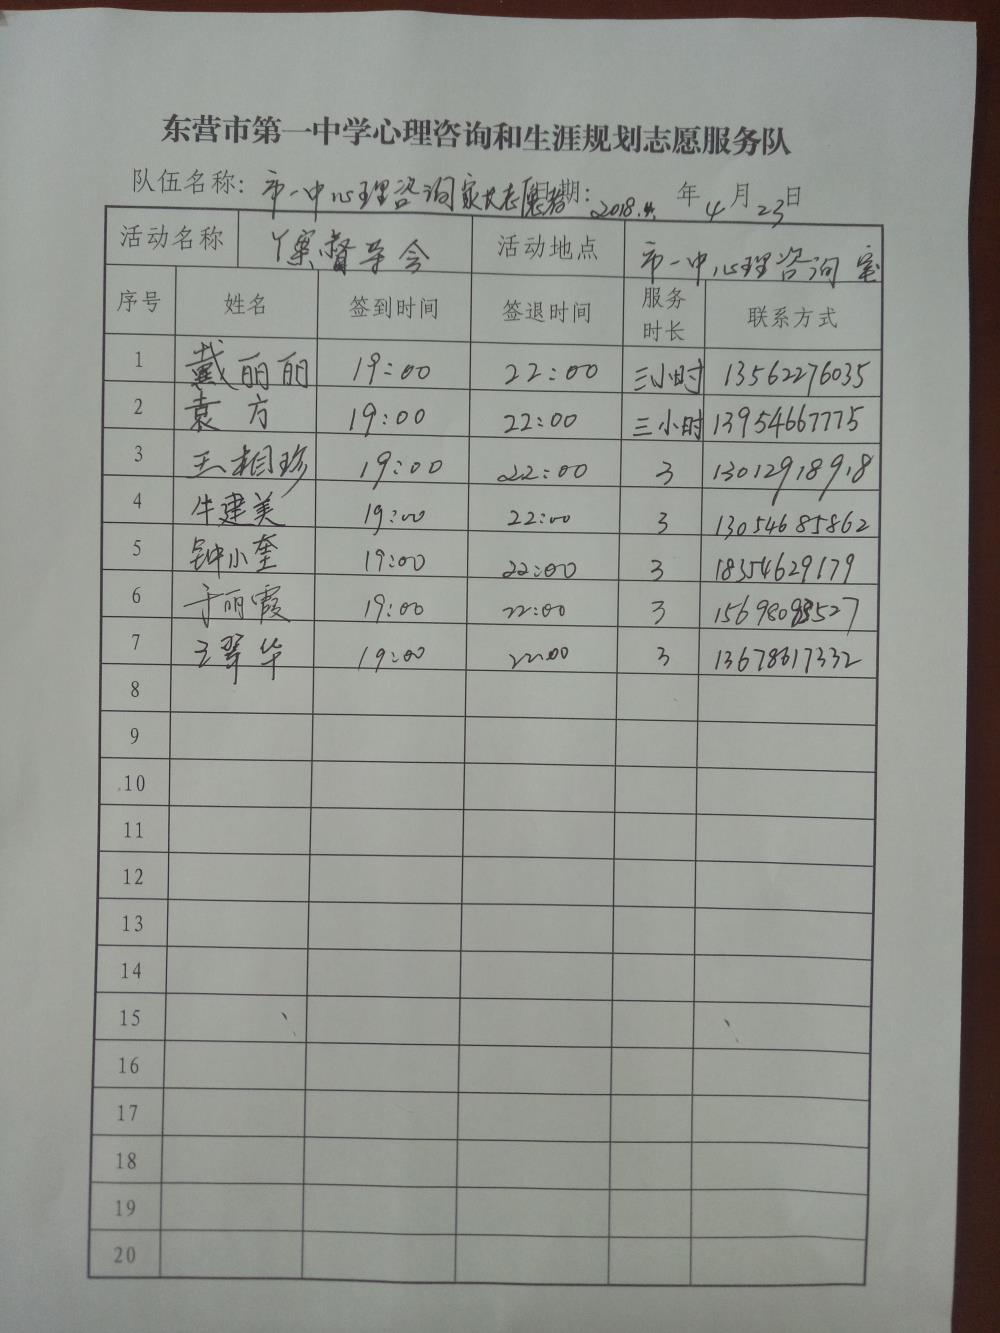 东营市第一中学心理咨询和生涯规划志愿服务队
队伍名称: 市一中心理咨询家长志愿者 日期: 2018.4. 年 4 月 23 日
活动名称 个案督导会 活动地点 市一中心理咨询室
序号 姓名 签到时间 签退时间 服务时长 联系方式
1 戴丽丽 19:00 22:00 三小时 13562276035
2 袁方 19:00 22:00 三小时 13954667775
3 王相珍 19:00 22:00 3 13012918918
4 牛建美 19:00 22:00 3 13054685862
5 钟小奎 19:00 22:00 3 18354629179
6 于丽霞 19:00 22:00 3
7 王翠华 19:00 22:00 3 13678617332
8
9
10
11
12
13
14
15
16
17
18
19
20